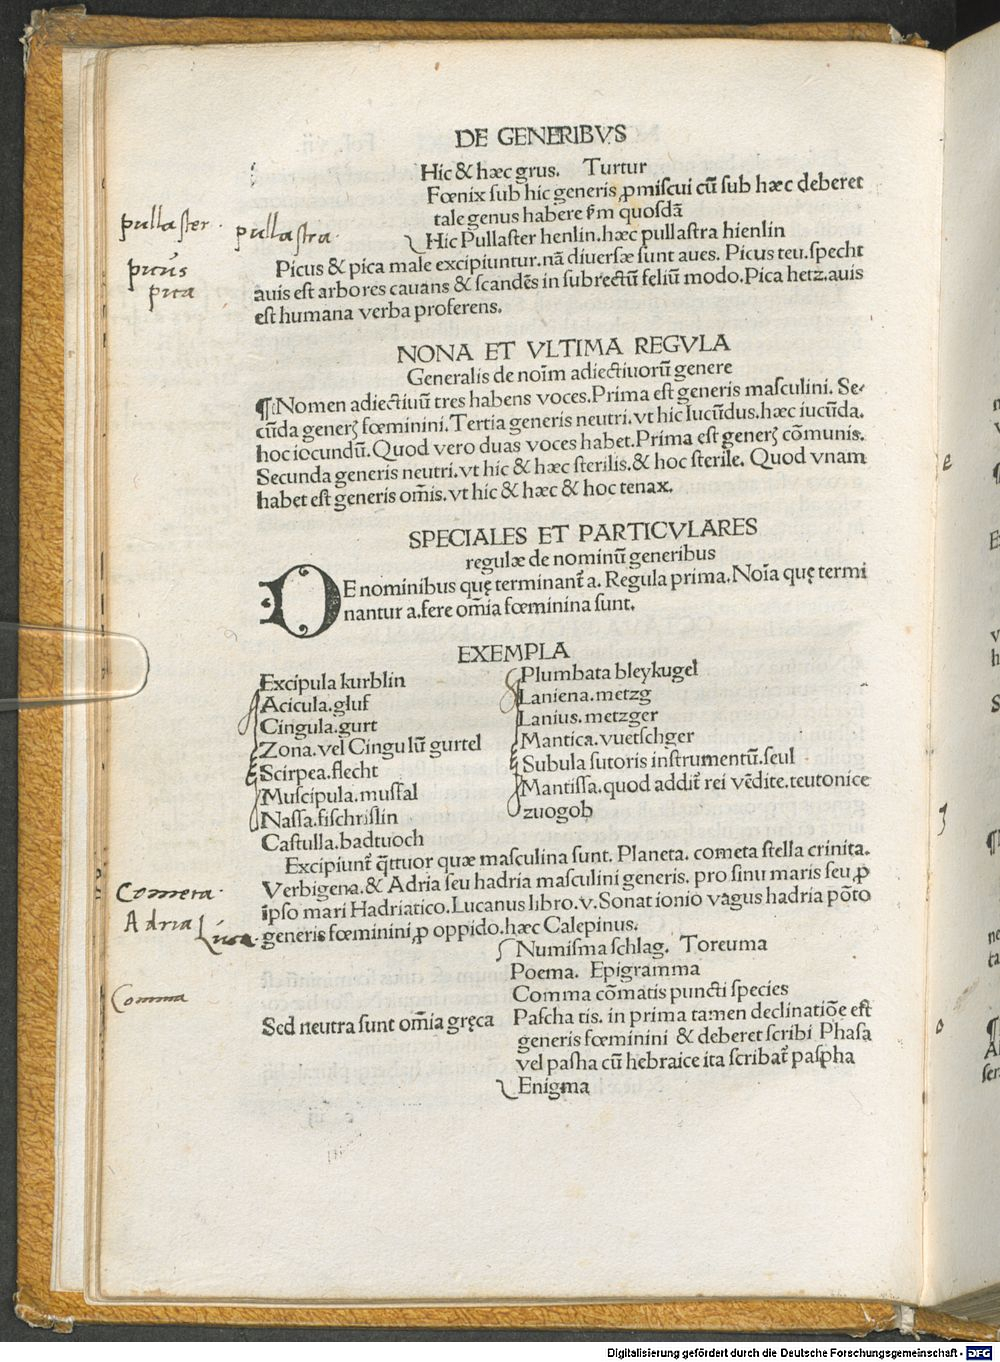 DE GENERIBVS
Hic & hæc grus. Turtur
Fœnix sub hic generis ꝓmiscui cū sub hæc deberet
tale genus habere ẜm quosdā
Hic Pullaster henlin.hæc pullastra hienlin
pullaster. pullastra.
Picus & pica male excipiuntur.nā diuersæ sunt aues. Picus teu.specht
auis est arbores cauans & scandēs in subrectū feliū modo.Pica hetz.auis
est humana verba proferens.
picus
pica
NONA ET VLTIMA REGVLA
Generalis de noīm adiectiuorū genere
¶Nomen adiectiuū tres habens voces.Prima est generis masculini. Se-
cūda generꝭ fœminini.Tertia generis neutri.vt hic Iucūdus.hæc iucūda.
hoc iocundū.Quod vero duas voces habet.Prima est generꝭ cōmunis.
Secunda generis neutri.vt hic & hæc sterilis.& hoc sterile. Quod vnam
habet est generis om̄is.vt hic & hæc & hoc tenax.
SPECIALES ET PARTICVLARES
regulæ de nominū generibus
DE nominibus quę terminant̄ a. Regula prima.Noīa quę termi
nantur a.fere om̄ia fœminina sunt.
EXEMPLA
Excipula kurblin
Acicula.gluf
Cingula.gurt
Zona.vel Cingulū gurtel
Scirpea.flecht
Muscipula.musfal
Nassa.fischrislin
Castulla.badtuoch
Plumbata bleykugel
Laniena.metzg
Lanius.metzger
Mantica.vuetschger
Subula sutoris instrumentū.seul
Mantissa.quod addit̄ rei vēdite.teutonice
zuogob
Excipiunt̄ q̄ttuor quæ masculina sunt. Planeta. cometa stella crinita.
Verbigena.& Adria seu hadria masculini generis. pro sinu maris seu ꝓ
ipso mari Hadriatico.Lucanus libro.v.Sonat ionio vagus hadria pōto
generis fœminini ꝓ oppido.hæc Calepinus.
Cometa.
Adria
Luca.
Numisma schlag. Toreuma
Poema. Epigramma
Comma cōmatis puncti species
Comma
Sed neutra sunt om̄ia gręca Pascha tis. in prima tamen declinatiōe est
generis fœminini & deberet scribi Phasa
vel pasha cū hebraice ita scribat̄ paspha
Enigma
Digitalisierung gefördert durch die Deutsche Forschungsgemeinschaft - DFG